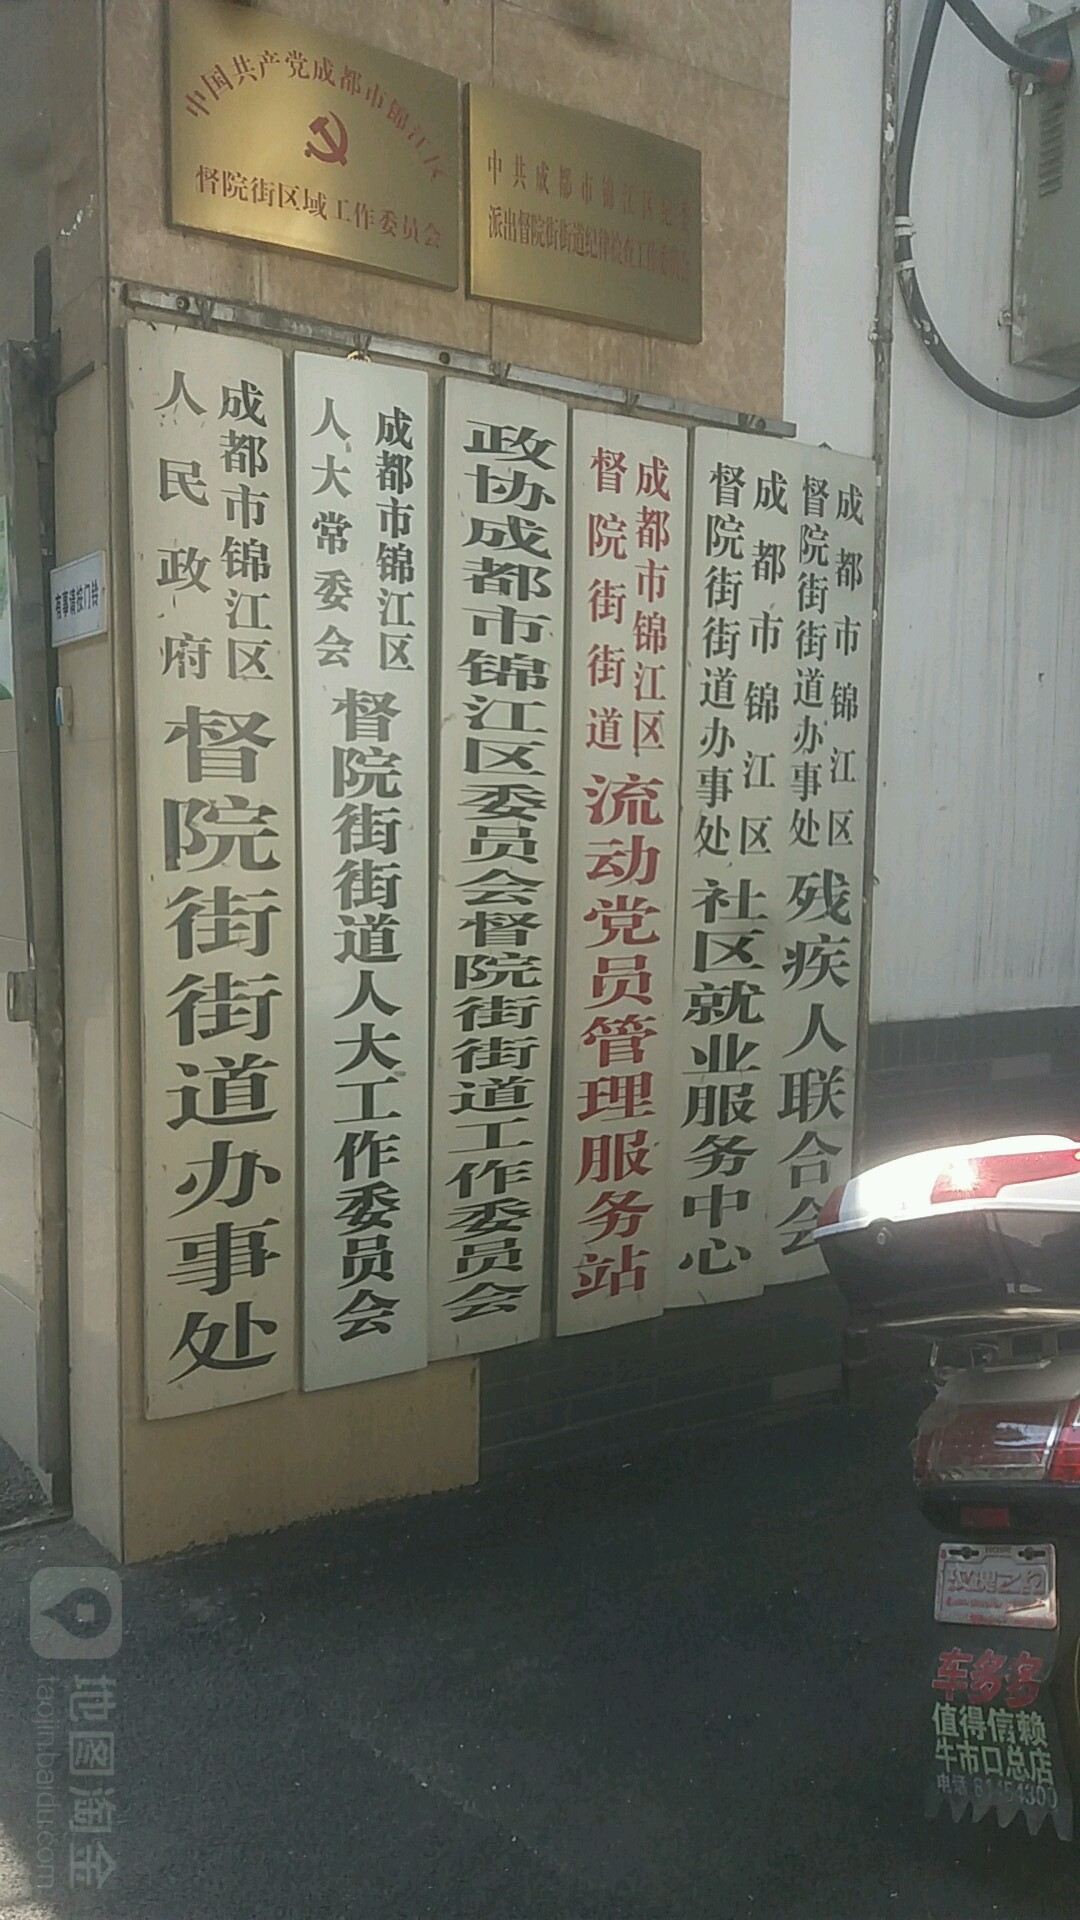 中国共产党成都市锦江区
督院街区域工作委员会
中共成都市锦江区纪委
派出督院街街道纪律检查工作委员会
成都市锦江区
人民政府
督院街街道办事处
成都市锦江区
人大常委会
督院街街道人大工作委员会
政协成都市锦江区委员会督院街街道工作委员会
成都市锦江区
督院街街道
流动党员管理服务站
成都市锦江区
督院街街道办事处
社区就业服务中心
成都市锦江区
督院街街道办事处
残疾人联合会
有事请按门铃
车多多
值得信赖
牛市口总店
电话
地图淘金
taojin.baidu.com